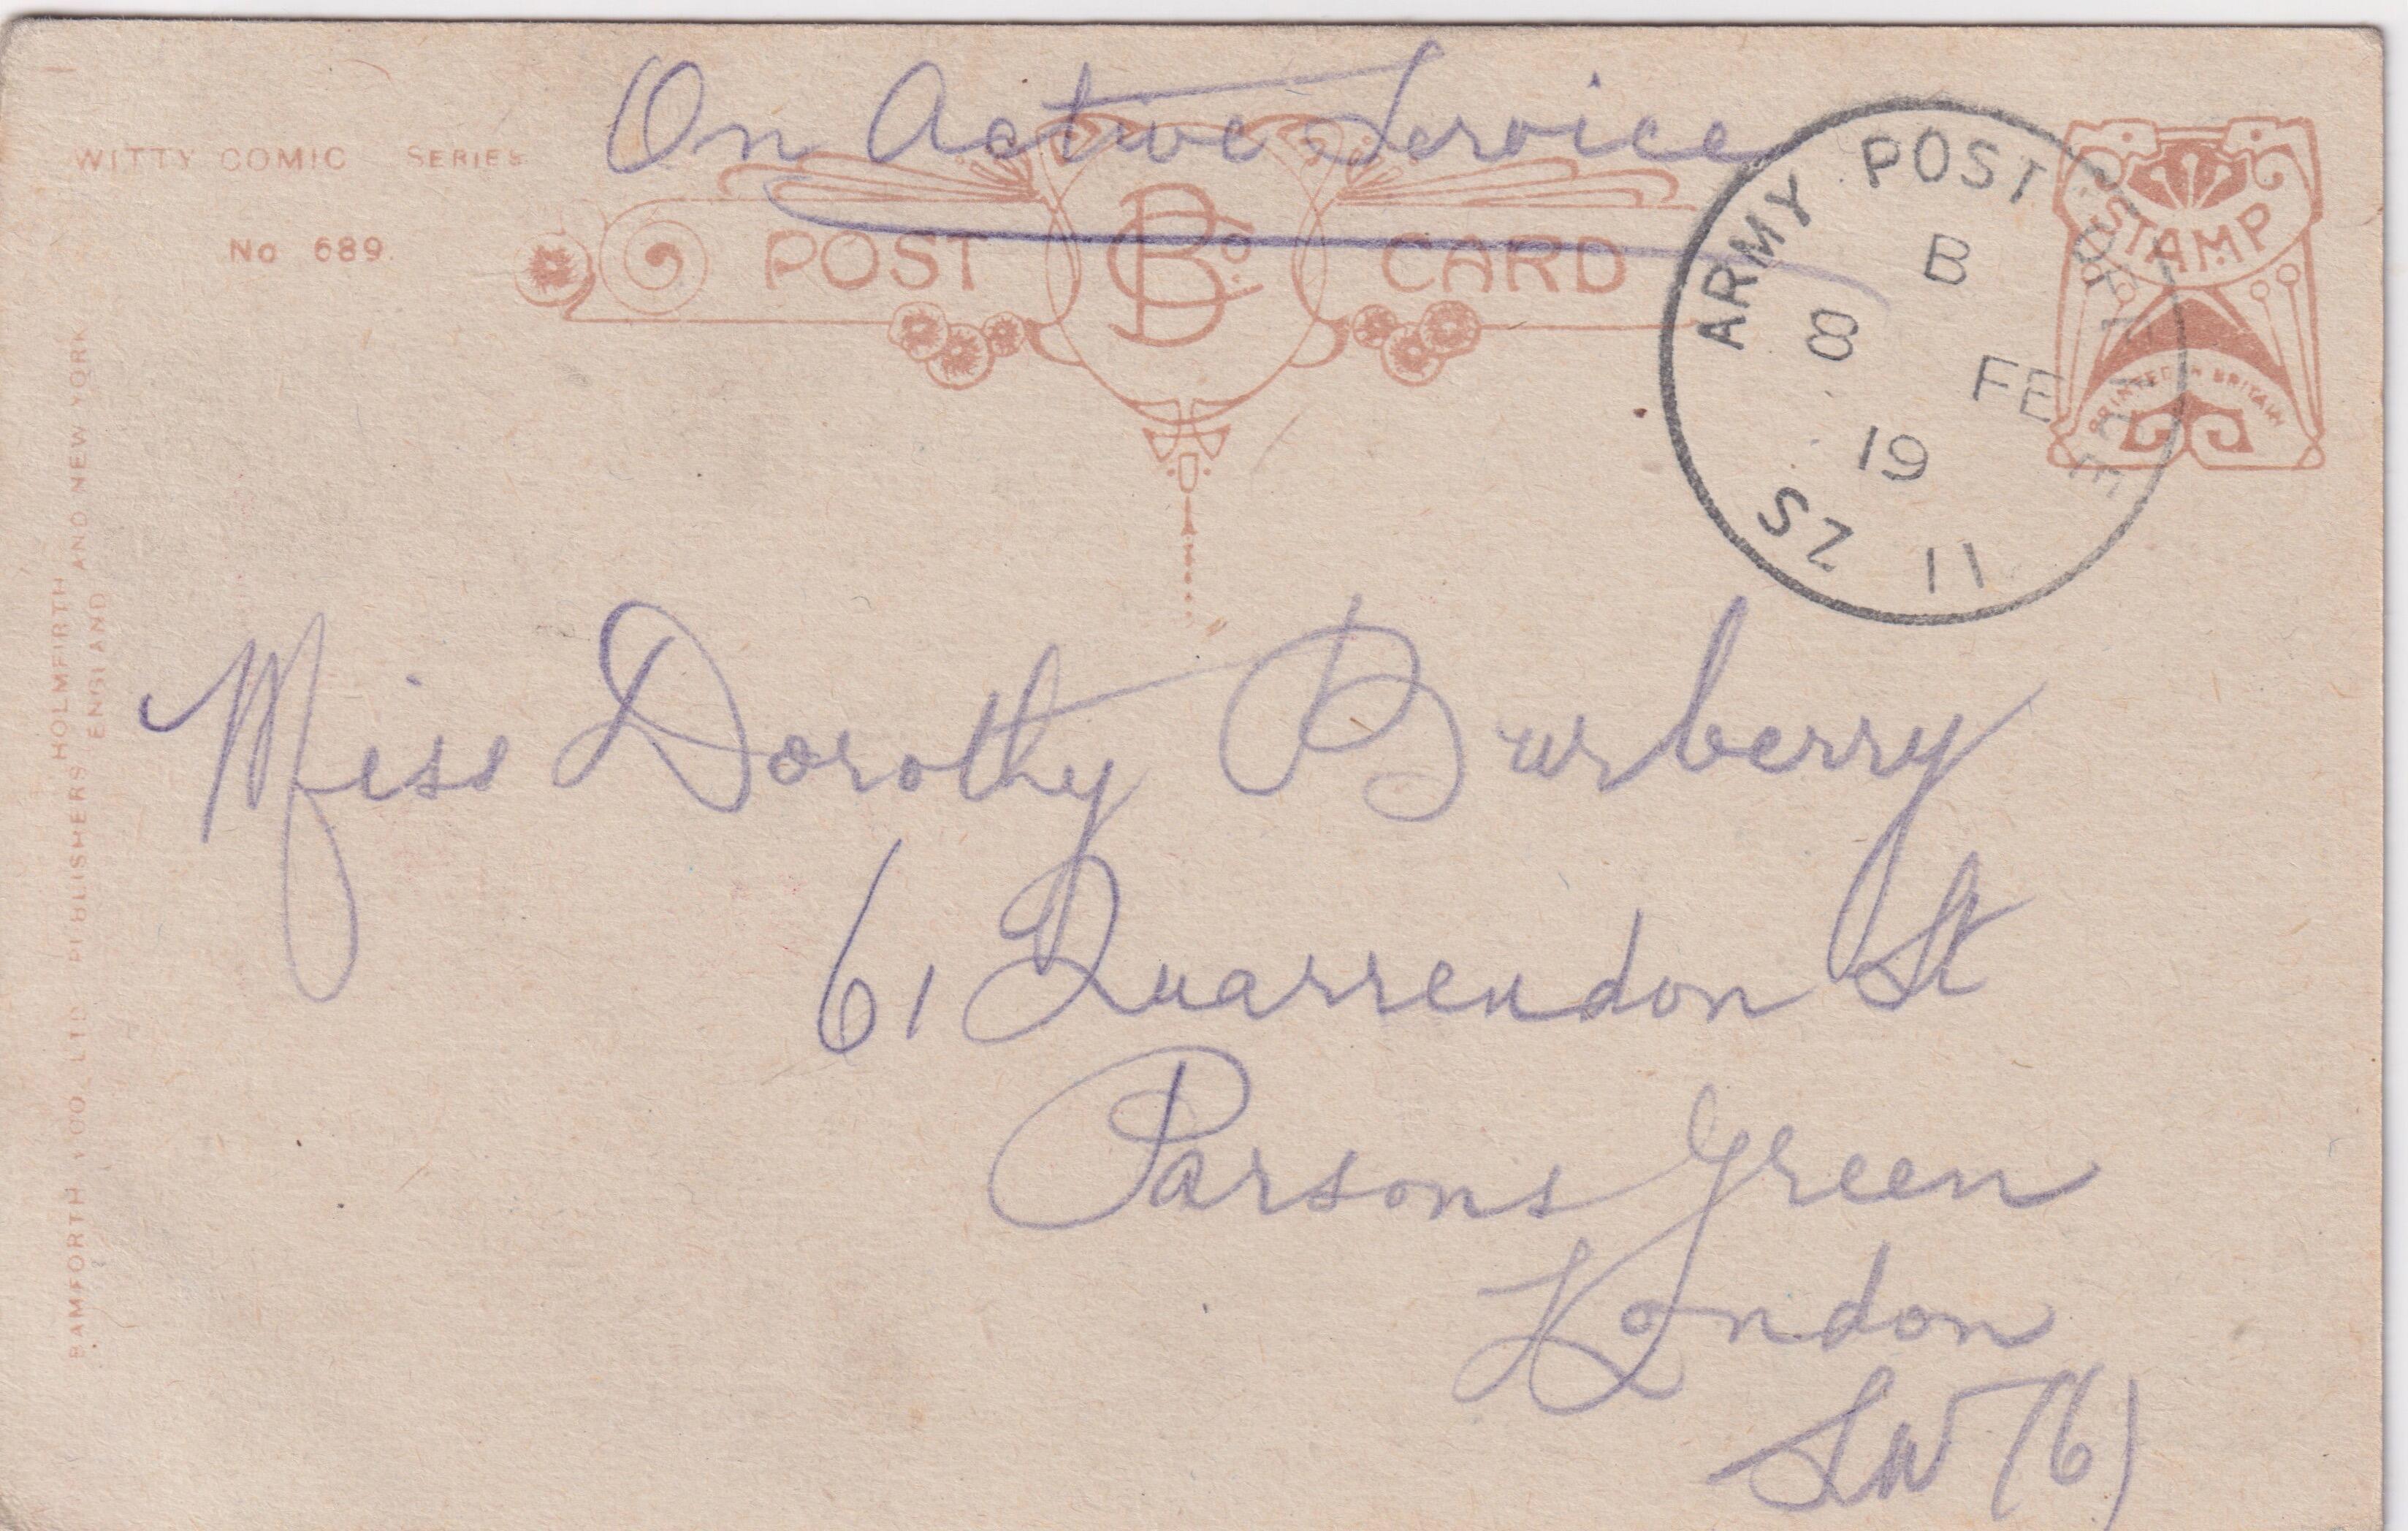 On Active Service
WITTY COMIC SERIES
No 689.
POST BCo. CARD
ARMY POST OFFICE
B
8 FE
19
SZ 11
STAMP
PRINTED IN BRITAIN
Miss Dorothy Burberry
61 Quarrendon St
Parsons Green
London
SW (6)
BAMFORTH & CO. LTD PUBLISHERS HOLMFIRTH ENGLAND AND NEW YORK